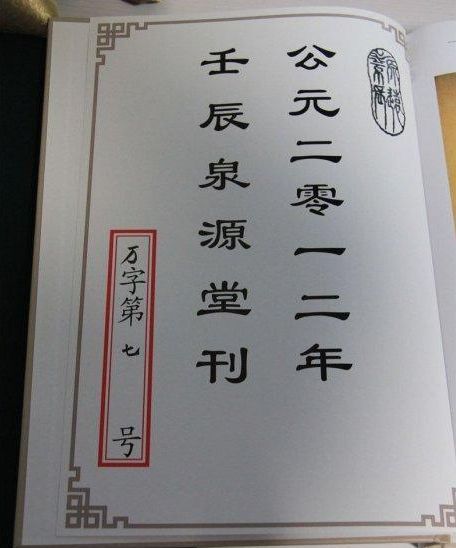 公元二零一二年
壬辰泉源堂刊
万字第七号